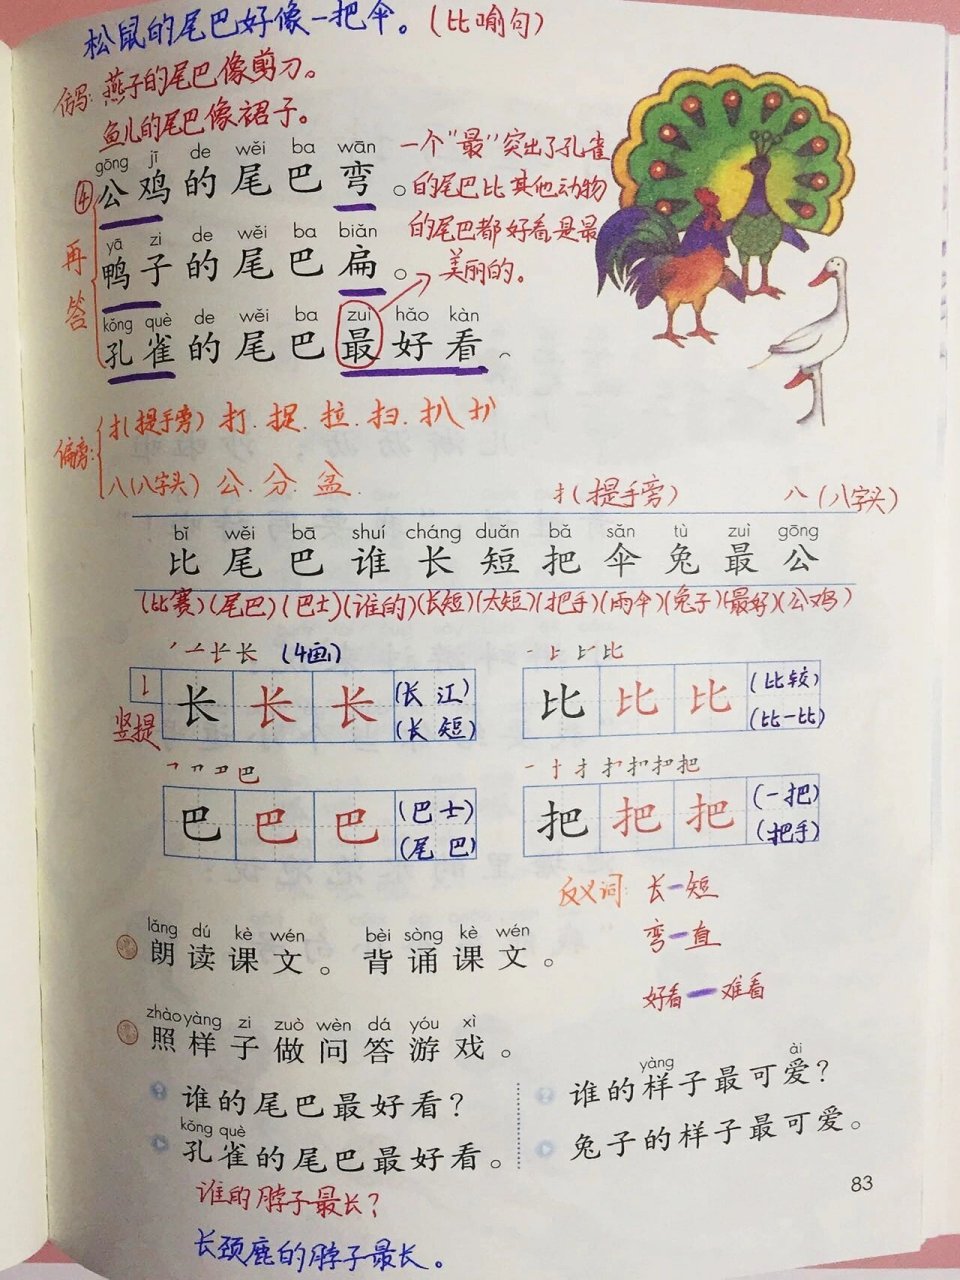 松鼠的尾巴好像一把伞。(比喻句)
仿写:燕子的尾巴像剪刀。
鱼儿的尾巴像裙子。
gōng jī de wěi ba wān
④公鸡的尾巴弯。
yā zi de wěi ba biǎn
鸭子的尾巴扁。
kǒng què de wěi ba zuì hǎo kàn
孔雀的尾巴最好看。
再答
一个“最”突出了孔雀
的尾巴比其他动物
的尾巴都好看是最
美丽的。
偏旁:
扌(提手旁)打.捉.拉.扫.扒.扑
八(八字头)公.分.盆.
扌(提手旁) 八(八字头)
bǐ wěi bā shuí cháng duǎn bǎ sǎn tù zuì gōng
比尾巴谁长短把伞兔最公
(比赛)(尾巴)(巴士)(谁的)(长短)(太短)(把手)(雨伞)(兔子)(最好)(公鸡)
(4画)
竖提
长 长 长 (长江)
(长短)
比 比 比 (比较)
(比一比)
巴 巴 巴 (巴士)
(尾巴)
把 把 把 (一把)
(把手)
反义词:长—短
弯—直
好看—难看
lǎng dú kè wén bèi sòng kè wén
朗读课文。背诵课文。
zhào yàng zi zuò wèn dá yóu xì
照样子做问答游戏。
谁的尾巴最好看?
kǒng què
孔雀的尾巴最好看。
yàng ài
谁的样子最可爱?
兔子的样子最可爱。
谁的脖子最长?
长颈鹿的脖子最长。
83